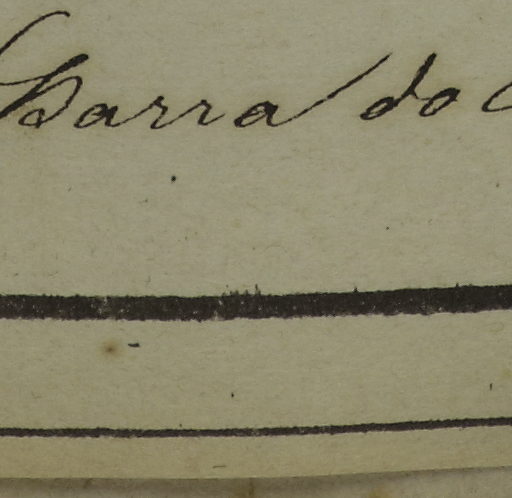 Barra do